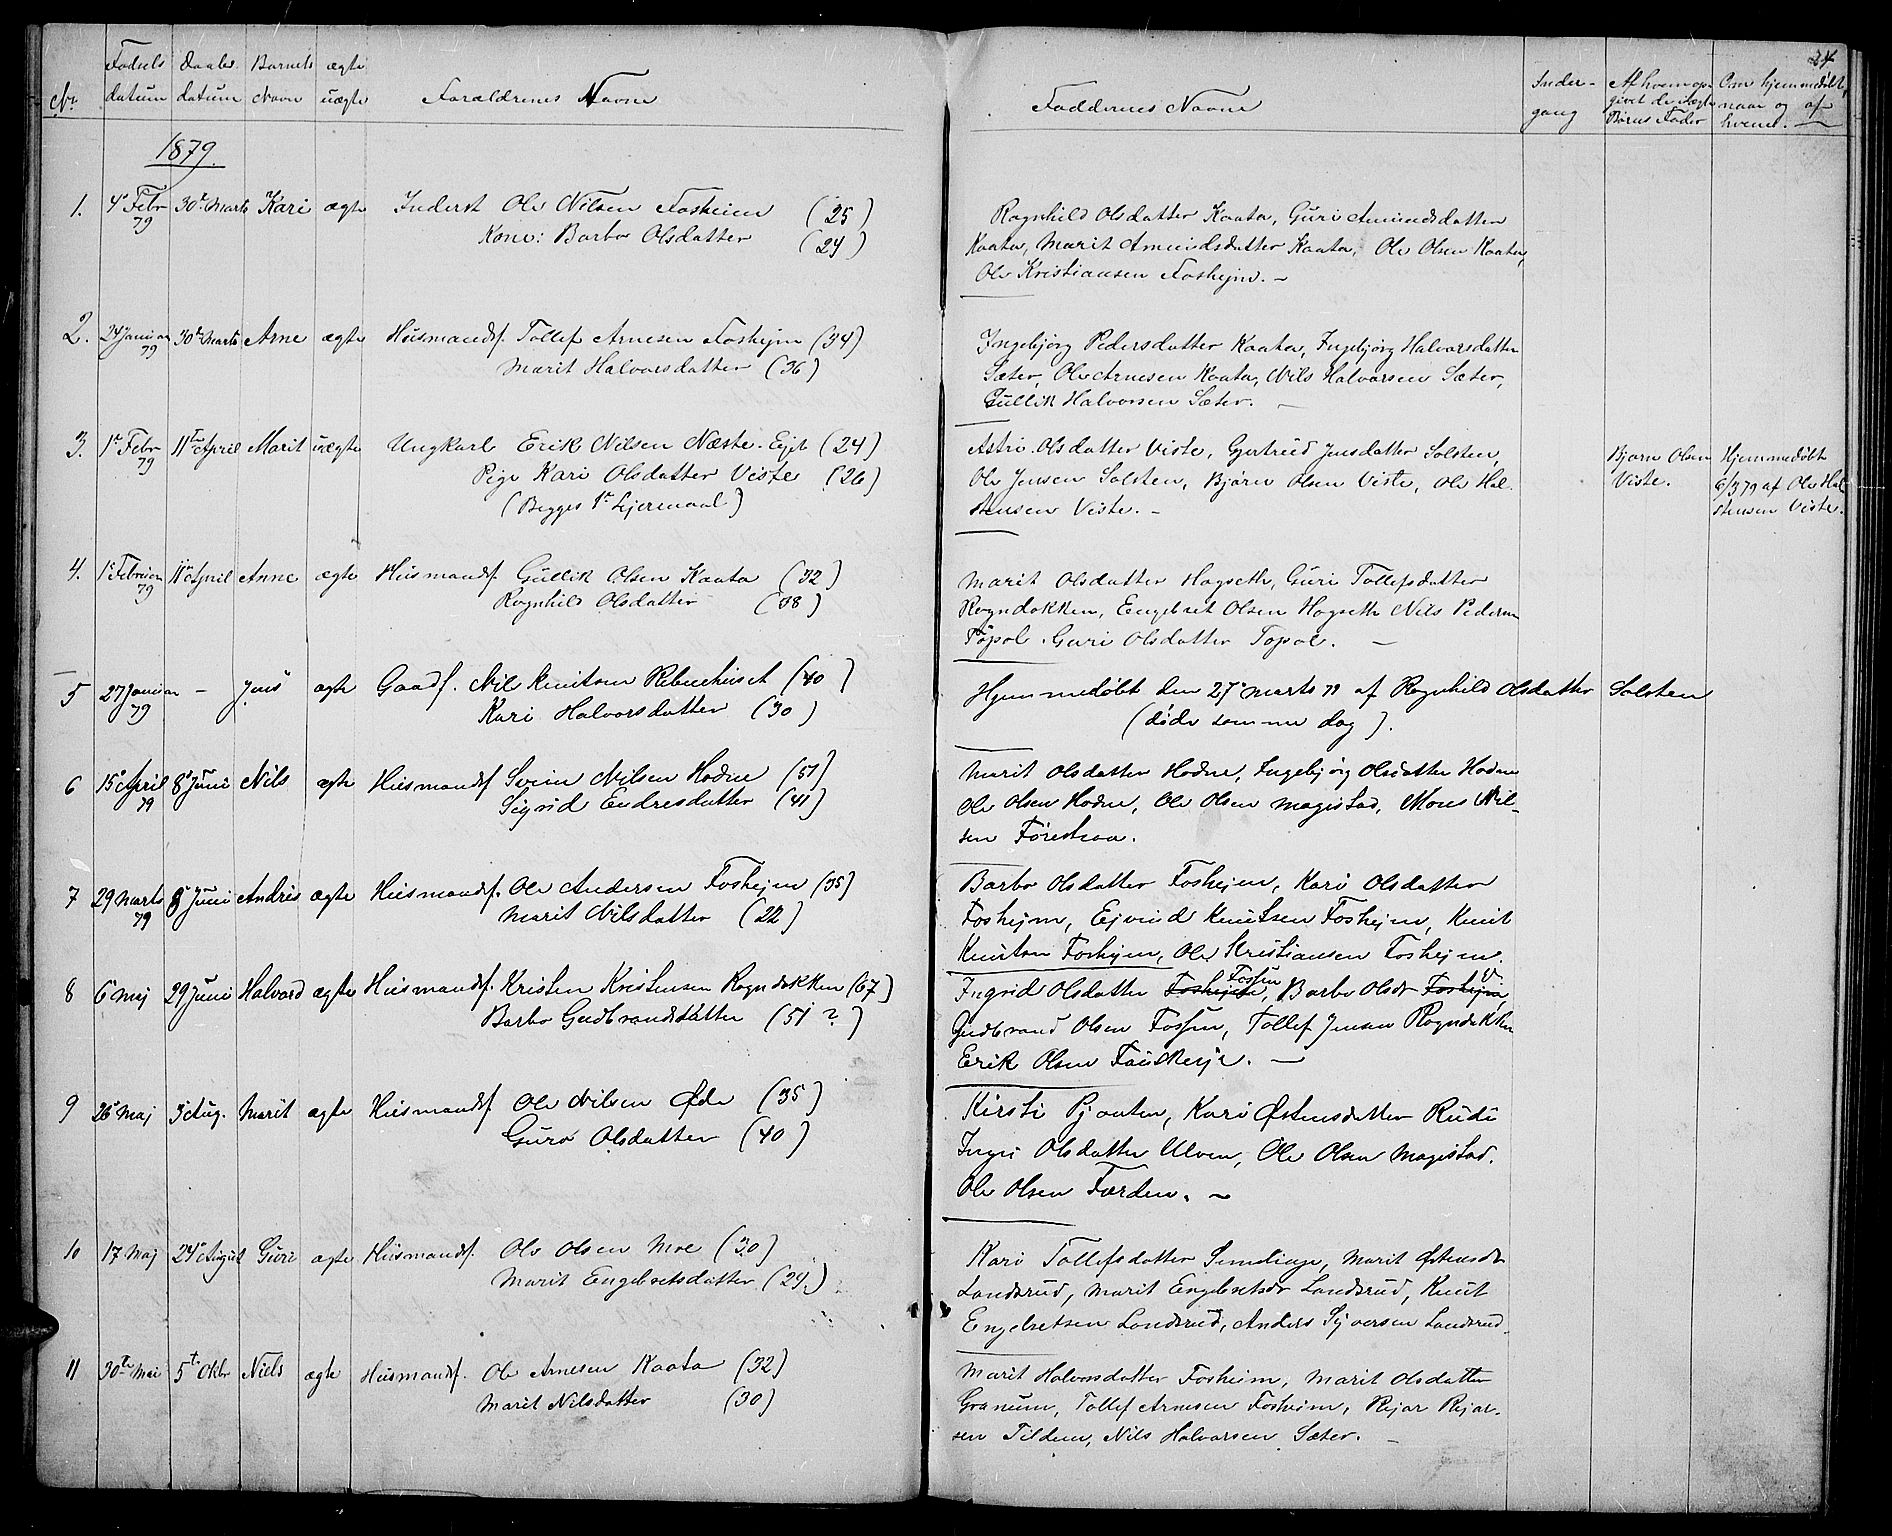 24
No Fødsels datum Daabs datum Barnets Navn ægte uægte Forældrenes Navne Faddernes Navne Inder- gang Af hvem op- givet de uægte Børns Fader Om hjemmedøbt, naar og af hvem.
1879.
1. 4de Febr 79 30te Marts Kari ægte Inderst Ole Nilsen Fosheim (25)
Kone: Barbo Olsdatter (24)
Ragnhild Olsdatter Kaata, Guri Amundsdatter
Kaata, Marit Amundsdatter Kaata, Ole Olsen Kaata,
Ole Kristiansen Foshejm. —
2. 24 Januar 79 30te Marts Arne ægte Husmandsf. Tollef Arnesen Foshejm (34)
Marit Halvorsdatter (36)
Ingebjørg Pedersdatter Kaata, Ingebjørg Halvorsdatter
Sæter, Ole Arnesen Kaata, Nils Halvorsen Sæter,
Gullik Halvorsen Sæter. —
3. 1te Febr 79 11te April Marit uægte Ungkarl Erik Nilsen Næste-Ejet (24)
Pige Kari Olsdatter Viste (26)
(Begges 1te Lejermaal)
Astri Olsdatter Viste, Gjertrud Jensdatter Solsten,
Ole Jensen Solsten, Bjørn Olsen Viste, Ole Hal-
stensen Viste. —
Bjørn Olsen
Viste.
Hjemmedøbt
6/3 79 af Ole Hal-
stensen Viste.
4. 1ste Februar 79 11te April Anne ægte Husmandsf. Gullik Olsen Kaata (32)
Ragnhild Olsdatter (38)
Marit Olsdatter Hagseth, Guri Tollefsdatter
Rogndokken, Engebret Olsen Hagseth Nils Pedersen
Topol. Guri Olsdatter Topol. —
5 27 Januar 79 - Jens ægte Gaardf. Nils Knutsen (40)
Kari Halvorsdatter (30)
Hjemmedøbt den 27de Marts 79 af Ragnhild Olsdatter Solsten
(døde samme dag).
6 15de April 79 8de Juni Nils ægte Husmandsf Svein Nilsen Hodne (51)
Sigrid Endresdatter (41)
Marit Olsdatter Hodne, Ingebjørg Olsdatter Hodne
Ole Olsen Hodne, Ole Olsen Magistad, Mons Nil-
sen Førestraa.
7 29 Marts 79 8de Juni Andris ægte Husmandsf. Ole Andersen Foshejm (35)
Marit Nilsdatter (22)
Barbo Olsdatter Foshejm, Kari Olsdatter
Foshejm, Ejvind Knutsen Foshejm, Knut
Knutsen Foshejm, Ole Kristiansen Foshejm.
8 6 Maj 29 Juni Halvard ægte Husmandsf. Kristen Kristensen Rogndokken (67)
Barbo Gudbrandsdatter (51?)
Ingrid Olsdatter Foshejm Fossen, Barbo Olsdr Foshejm,
Gudbrand Olsen Fossen, Tollef Jensen Rogndokken
Erik Olsen Fauskerje. —
9 26de Maj 3de Aug. Marit ægte Husmandsf Ole Nilsen Øde (35)
Guro Olsdatter (40)
Kirsti Pjaaten, Kari Østensdatter Rudi
Ingri Olsdatter Ulven, Ole Olsen Magistad.
Ole Olsen Færden. —
10 17 Maj 24de August Guri ægte Husmandsf. Ole Olsen Moe (30)
Marit Engebretsdatter (24)
Kari Tollefsdatter Marit Østensdr
Landsrud, Marit Engebretsdr Landsrud, Knut
Engebretsen Landsrud, Anders Syversen Landsrud.
11 30te Mai 5te Okbr Niels ægte Husmandsf. Ole Arnesen Kaata (32)
Marit Nilsdatter (30)
Marit Halvorsdatter Fosheim, Marit Olsdatter
Granum, Tollef Arnesen Fosheim, Rejar Rejar-
sen Tildem, Nils Halvorsen Sæter. —